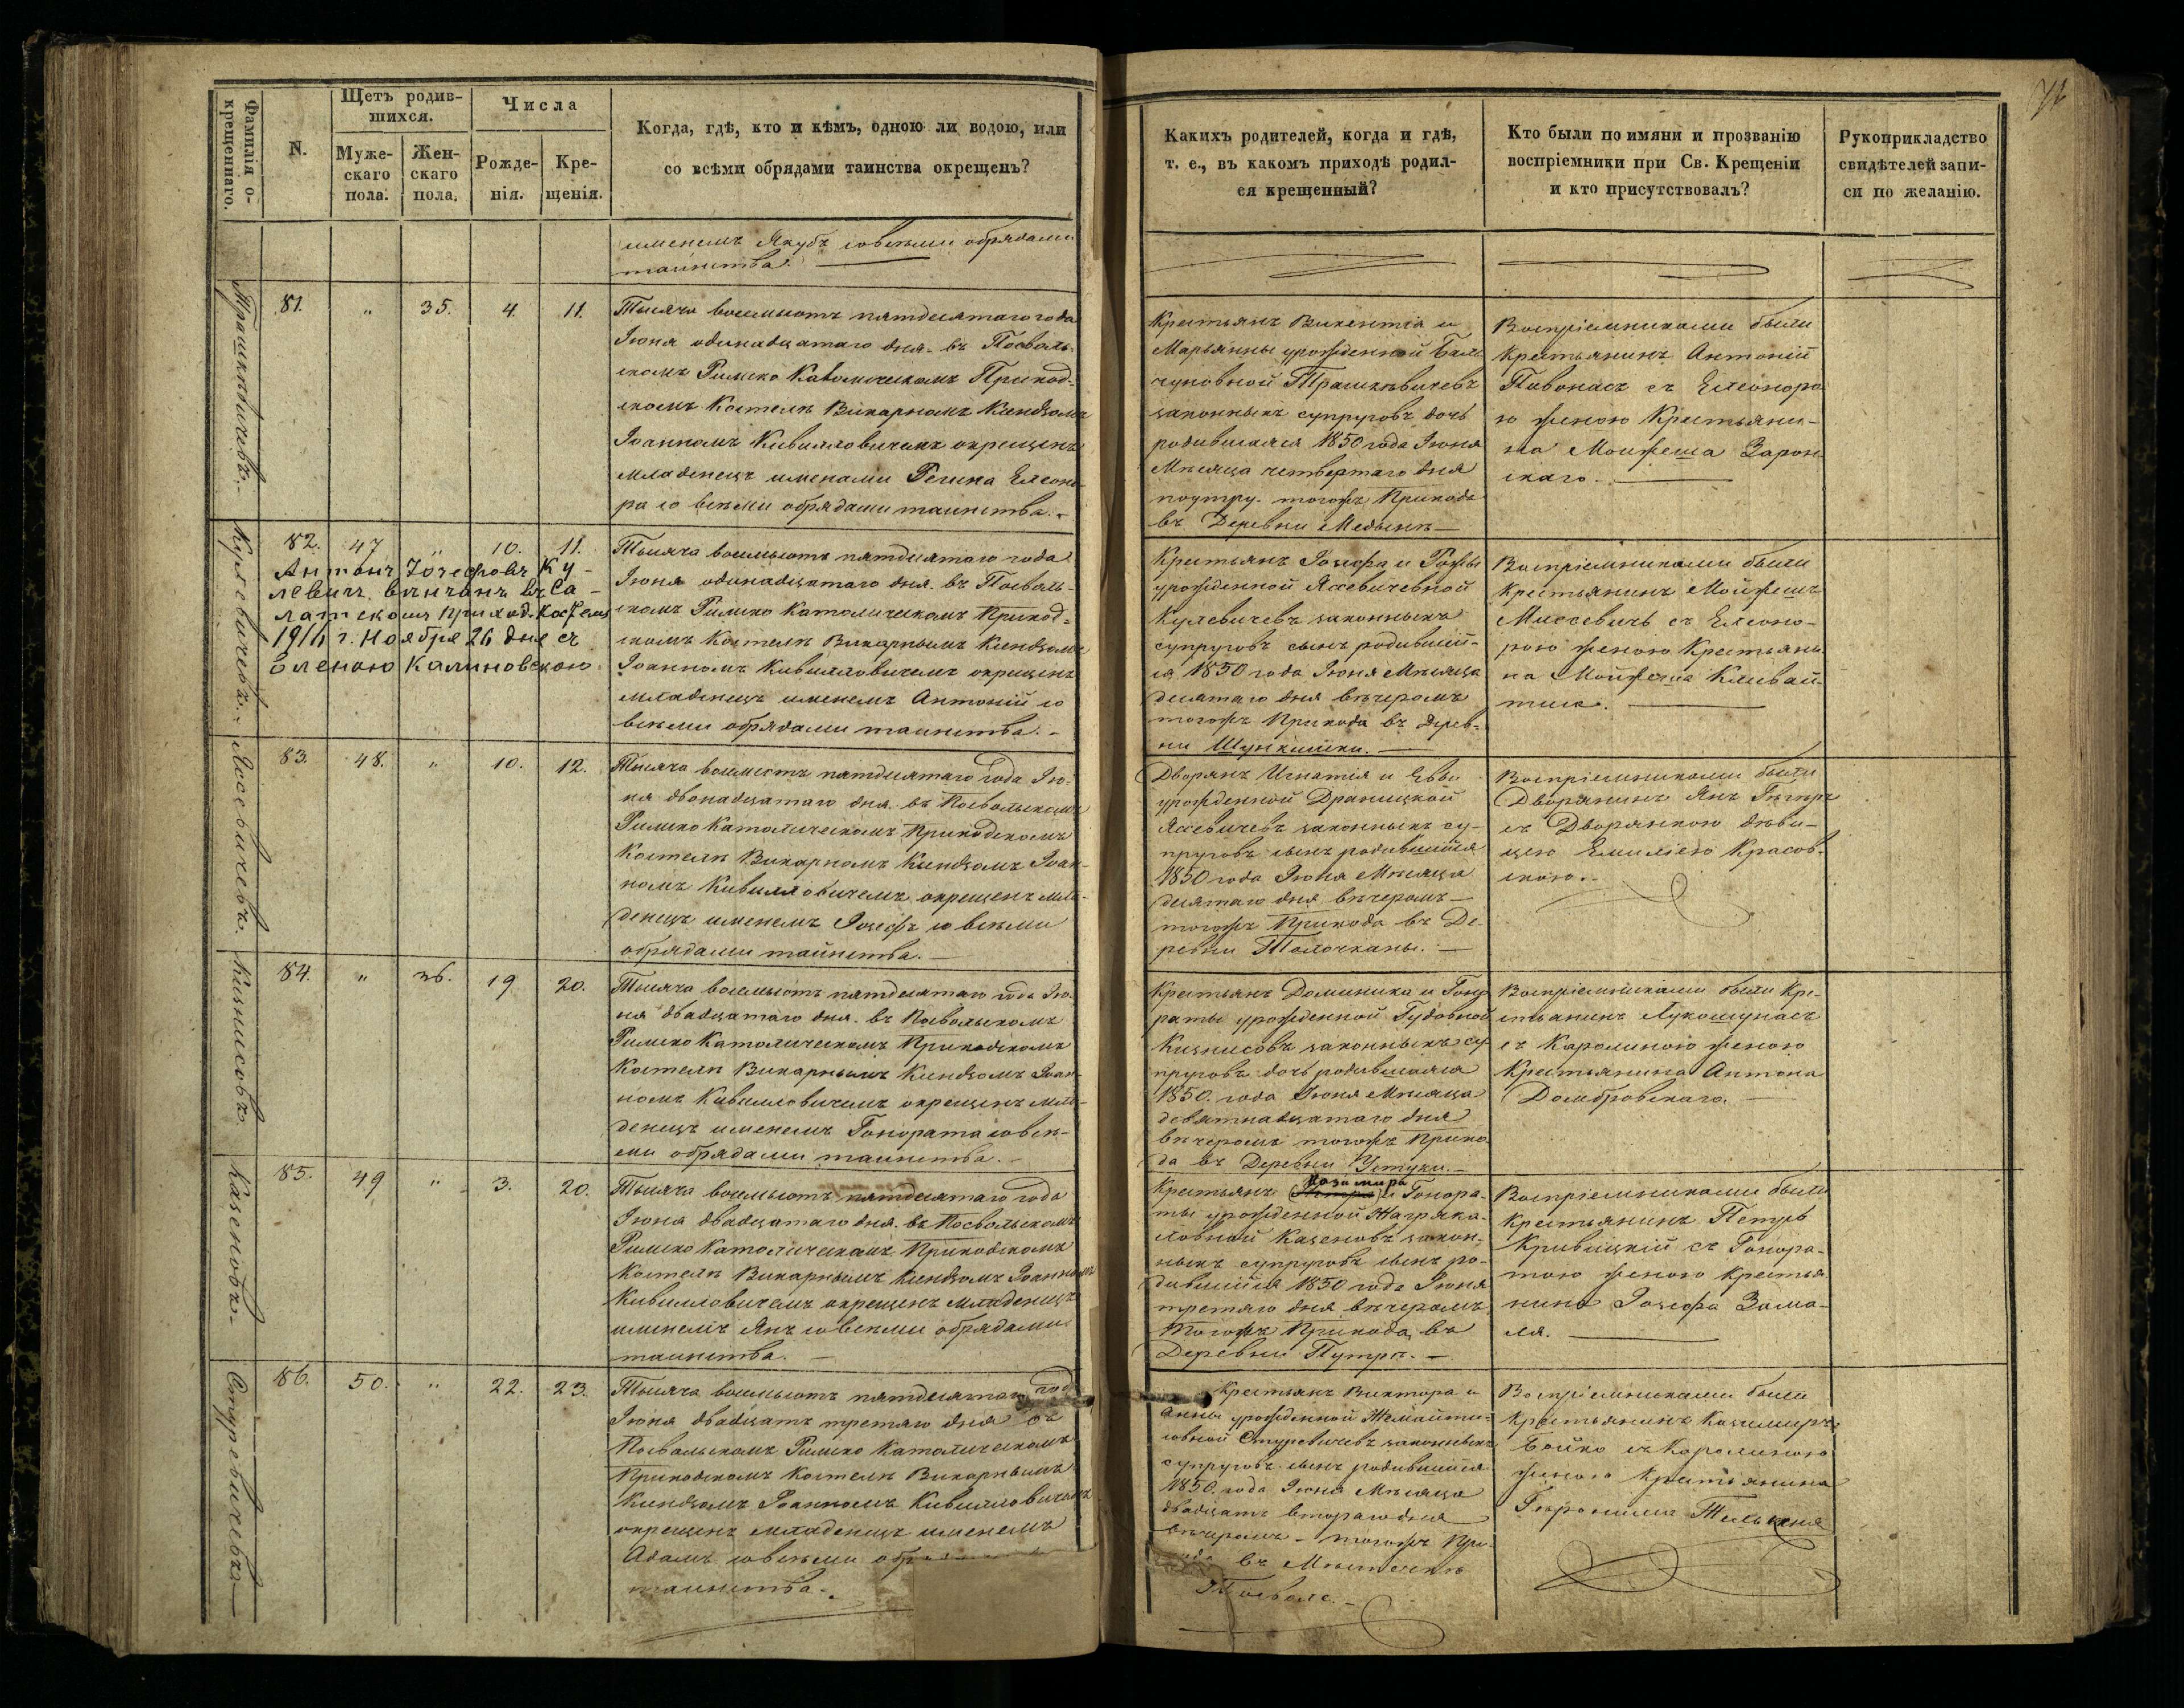 Фамилія о-
крещеннаго.
N.
Щетъ родив-
шихся.
Муже-
скаго
пола.
Жен-
скаго
пола.
Числа
Рожде-
нія.
Кре-
щенія.
Когда, гдѣ, кто и кѣмъ, одною ли водою, или
со всѣми обрядами таинства окрещенъ?
Какихъ родителей, когда и гдѣ,
т. е., въ какомъ приходѣ родил-
ся крещенный?
Кто были по имяни и прозванію
воспріемники при Св. Крещеніи
и кто присутствовалъ?
Рукоприкладство
свидѣтелей запи-
си по желанію.
именемъ Якубъ со всѣми обрядами
таинства.
81. " 35. 4. 11.
Тысяча восемьсотъ пятдесятаго года
Іюня одинадцатаго дня въ Посволь-
скомъ Римско Католическомъ Приход-
скомъ Костелѣ Викарнымъ Ксендзомъ
Іоанномъ Кивилловичемъ окрещенъ
младенецъ именами Регина Елеоно-
ра со всѣми обрядами таинства.
Крестьянъ Викентія и
Марьянны урожденной
законныхъ супруговъ дочь
родившаяся 1850 года Іюня
Мѣсяца четвертаго дня
поутру тогожъ Прихода
въ Деревни
Воспріемниками были
Крестьянинъ Антоній
Пивонасъ съ Елеонора
ю женою Крестьяни-
на Мойжеша Зарон
скаго.
Кулевичевъ.
82. 47 " 10. 11.
Антонъ Іозефовъ Ку-
левичъ вѣнчанъ въ Са-
латскомъ приход. костелѣ
19 г. Ноября 26 дня съ
Еленою Калиновскою.
Тысяча восемьсотъ пятдесятаго года
Іюня одинадцатаго дня въ Посволь-
скомъ Римско Католическомъ Приход-
скомъ Костелѣ Викарнымъ Ксендзомъ
Іоанномъ Кивилловичемъ окрещенъ
младенецъ именемъ Антоній со
всѣми обрядами таинства.
Крестьянъ Іозефа и Розы
урожденной Яссевичевной
Кулевичевъ законныхъ
супруговъ сынъ родивший-
ся 1850 года Іюня Мѣсяца
десятаго дня вѣчеромъ
тогожъ Прихода въ дерев-
ни Шункишки.
Воспріемниками были
Крестьянинъ Мойжешъ
Миссевичъ съ Елеоно-
рою женою Крестьяни
на Мойжеша Кливай
тиса.
Яссевичевъ.
83. 48. " 10. 12.
Тысяча восемсотъ пятдесятаго года Ію-
ня двонадцатаго дня въ Посвольскомъ
Римско Католическомъ Приходскомъ
Костелѣ Викарнымъ Ксендзомъ Іоан-
номъ Кивилловичемъ окрещенъ мла-
денецъ именемъ Іозефъ со всѣми
обрядами таинства.
Дворянъ Игнатія и Еввы
урожденной Драницкой
Яссевичевъ законныхъ су-
пруговъ сынъ родившийся
1850 года Іюня Мѣсяца
десятаго дня вѣчеромъ
тогожъ Прихода въ Де-
ревни Толочканы.
Воспріемниками были
Дворянинъ Янъ
съ Дворянкою дѣви-
цею Емиліею Красов-
скою.
Кизнисовъ
84. " 36. 19 20.
Тысяча восемьсотъ пятдесятаго года Ію-
ня двадцатаго дня въ Посвольскомъ
Римско Католическомъ Приходскомъ
Костелѣ Викарнымъ Ксендзомъ Іоан-
номъ Кивилловичемъ окрещенъ мла-
денецъ именемъ Гонората со всѣ-
ми обрядами таинства.
Крестьянъ Доминика и Гоно
раты урожденной Гудовной
Кизнисовъ законныхъ су
пруговъ дочь родившаяся
1850. года Іюня Мѣсяца
девятнадцатаго дня
вѣчеромъ тогожъ Прихо
да въ Деревни Устуки.
Воспріемниками были Кре-
стьянинъ Лукошунасъ
съ Каролиною женою
Крестьянина Антона
Домбровскаго.
Казеновъ
85. 49 " 3. 20.
Тысяча восемьсотъ пятдесятаго года
Іюня двадцатаго дня въ Посвольскомъ
Римско Католическомъ Приходскомъ
Костелѣ Викарнымъ Ксендзомъ Іоанномъ
Кивилловичемъ окрещенъ младенецъ
именемъ Янъ со всѣми обрядами
таинства.
Казимира
Крестьянъ и Гонора-
ты урожденной
Казеновъ закон-
ныхъ супруговъ сынъ ро-
дившийся 1850 года Іюня
третяго дня вѣчеромъ
Тогожъ Прихода въ
Деревни Путры.
Воспріемниками были
Крестьянинъ Петръ
Кривицкій съ Гонора-
тою женою Крестья
нина Іозефа Зама-
ля.
Стуревичевъ
86. 50. " 22. 23.
Тысяча восемьсотъ пятдесятаго год
Іюня двадцать третяго дня въ
Посвольскомъ Римско Католическомъ
Приходскомъ Костелѣ Викарнымъ
Ксендзомъ Іоанномъ Кивилловичемъ
окрещенъ младенецъ именемъ
Адамъ со всѣми
таинства.
Крестьянъ Виктора и
Анны урожденной Жемайти-
совной Стуревичевъ законныхъ
супруговъ сынъ родившийся
1850. года Іюня Мѣсяца
двадцать втораго дня
вѣчеромъ тогожъ При-
въ Мѣстечкѣ
Посволѣ.
Воспріемниками были
Крестьянинъ Казимиръ
Бойко съ Каролиною
женою Крестьянина